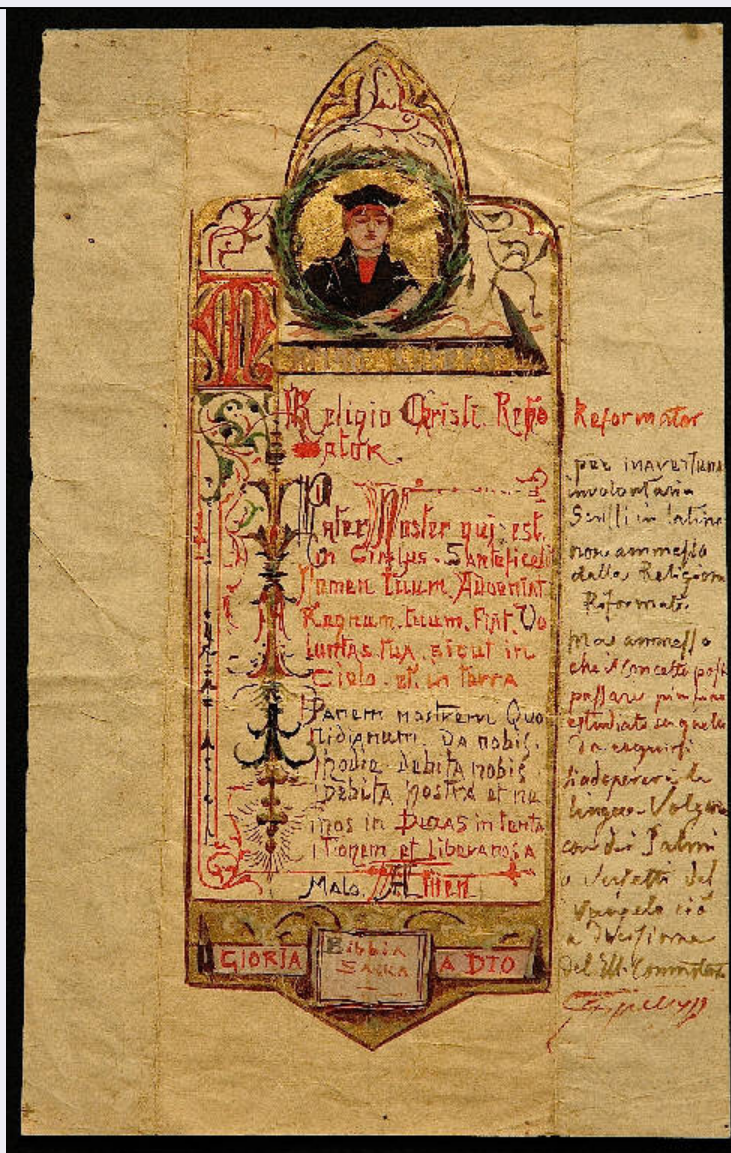 Religio Christi. Refo
ator.
Pater Noster qui est.
in Cielus. Santeficeti
Nomen tuum. Adveniat
Regnum. tuum. Fiat. Vo
luntas tua. sicut in
Cielo. et. in terra
Panem nostrem Quo
tidianum. Da nobis.
hodie. Debita nobis
Debita nostra et ne
inos in Ducas in tenta
itonem et liberanosa
Malo. Amen
GLORIA
BIBBIA
SACRA
A DIO
Reformator
per inavertenza
involontaria
Scrissi in latino
non ammesso
dalla Religione
Reformata.
ma ammesso
che il Concetto
passare
da eseguirsi
s'adopererà la
lingua Volgare
con dei Salmi
o versetti del
Vangelo ciò
a
del Ill.